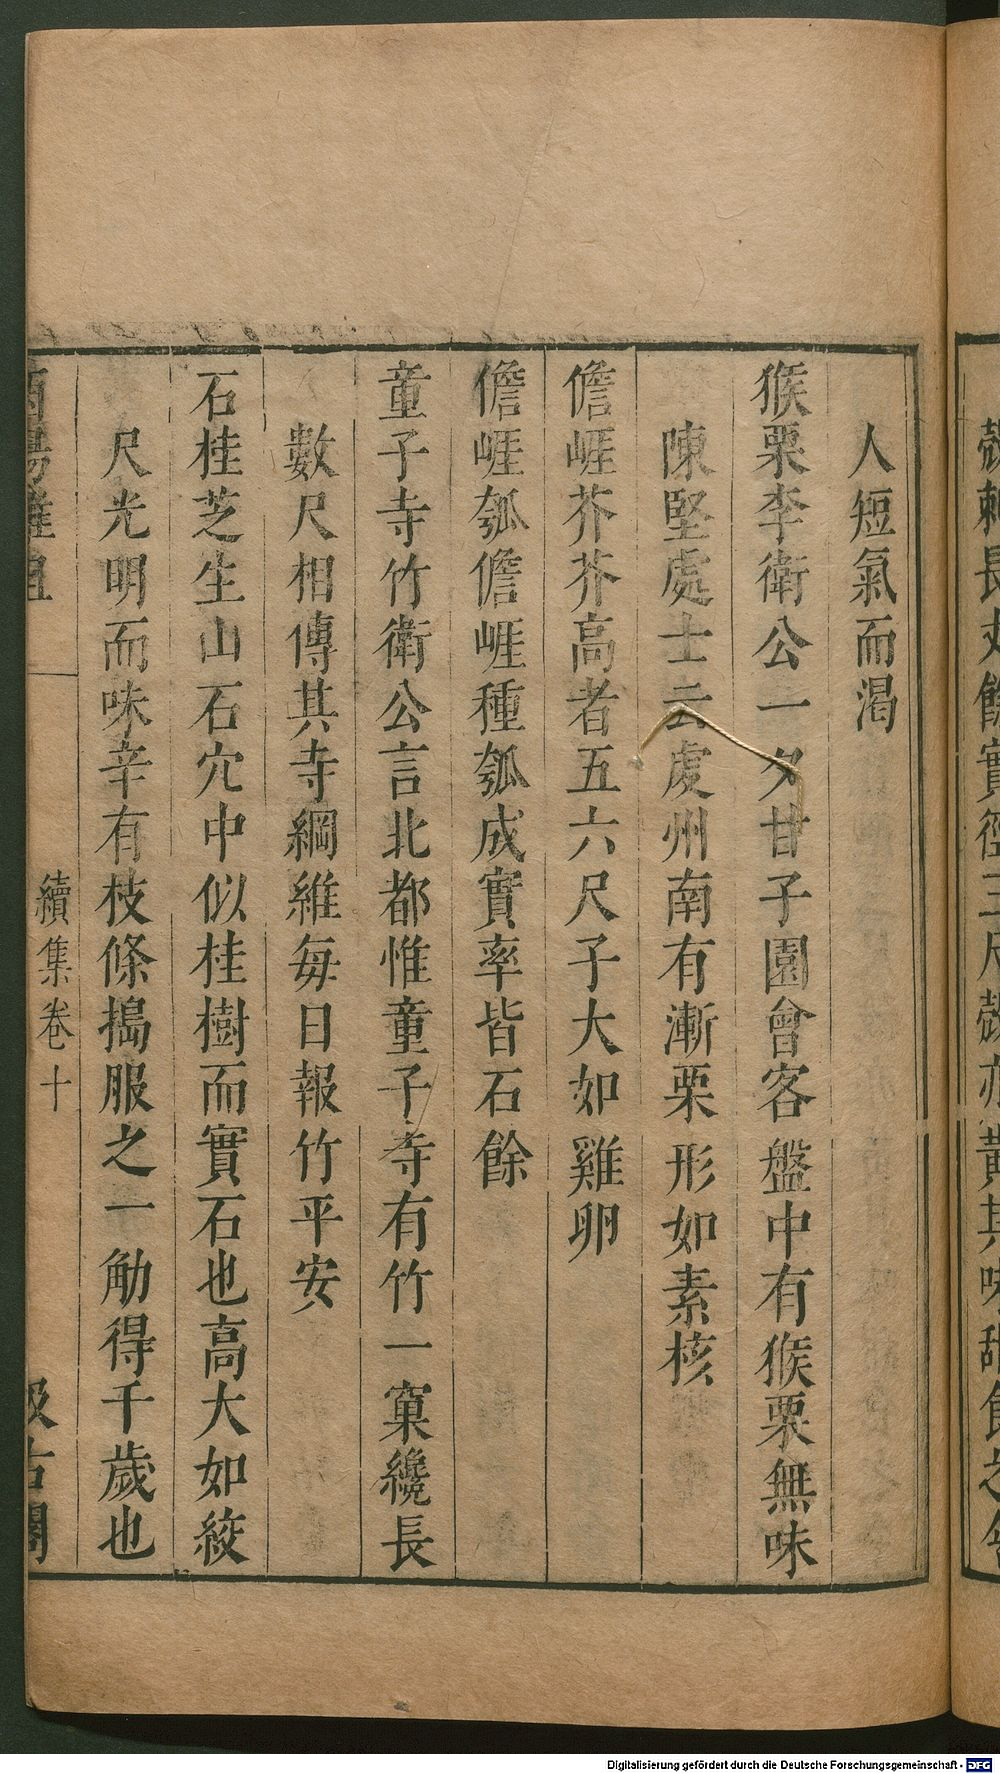 人短氣而渴
猴栗李衛公一夕甘子園會客盤中有猴栗無味
陳堅處士云虔州南有漸栗形如素核
儋崕芥芥高者五六尺子大如雞卵
儋崕瓠儋崕種瓠成實率皆石餘
童子寺竹衛公言北都惟童子寺有竹一窠纔長
數尺相傳其寺綱維每日報竹平安
石桂芝生山石穴中似桂樹而實石也高大如絞
尺光明而味辛有枝條搗服之一觔得千歲也
酉陽雜俎
續集卷十
汲古閣
殼刺長丈餘實徑三尺殼亦黃其味甜食之令
Digitalisierung gefördert durch die Deutsche Forschungsgemeinschaft - DFG